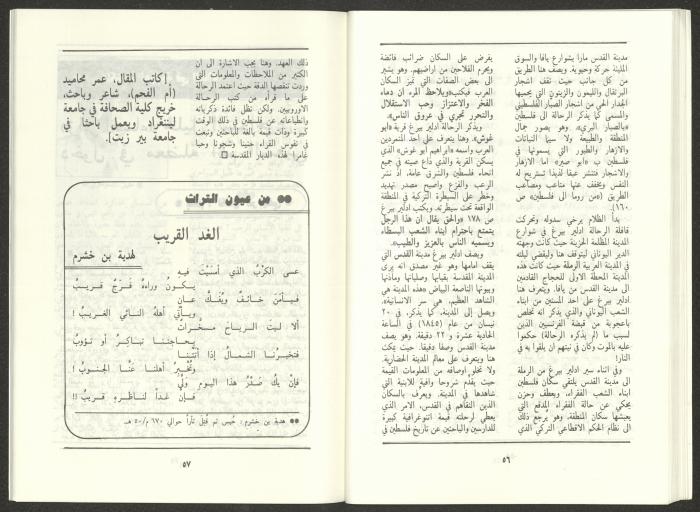 مدينة القدس مارا بشوارع يافا والسوق
المليئة حركة وحيوية. ويصف هنا الطريق
من كل جانب حيث تقف اشجار
البرتقال والليمون والزيتون التي يحميها
الجدار الحي من اشجار الصبار الفلسطيني
والمسمى كما يذكر الرحالة الى فلسطين
«بالصبار البري». وهو يصور جمال
المنطقة والطبيعة ولا سيما النباتات
والازهار والطيور التي يسمونها في
فلسطين ب «ابو صبر» اما الازهار
والاشجار فتنشر عبقا لذيذا تستريح له
النفس ويخفف عنها متاعب ومصاعب
الطريق (من روما الى فلسطين» ص
١٦٠).
بدأ الظلام يرخي سدوله وتحركت
قافلة الرحالة ادلير بيرغ في شوارع
المدينة المظلمة الحزينة حيث كانت وجهته
الدير اليوناني ليتوقف هنا وليقضي ليلته
في المدينة العربية الرملة حيث كانت هذه
المدينة المحطة الاولى للحجاج القادمين
الى مدينة القدس من يافا. ويتعرف هنا
ادلير بيرغ على احد المسنين من ابناء
الشعب اليوناني والذي يذكر انه تخلص
باعجوبة من قبضة الفرنسيين الذين
لسبب ما (لم يذكره الرحالة) حكموا
عليه بالموت وكان في نيتهم ان يلقوا به في
النار!
وفي اثناء سير ادلير بيرغ من الرملة
الى مدينة القدس يلتقي سكان فلسطين
ابناء الشعب الفقراء، ويعطف وحزن
يحكي عن حالة الفقراء المدقع التي
يعيشها سكان المنطقة، وهو يرجع ذلك
الى نظام الحكم الاقطاعي التركي الذي
يفرض على السكان ضرائب فائضة
ويحرم الفلاحين من اراضيهم. وهو يشير
الى بعض الصفات التي تميز السكان
العرب فيكتب «يلاحظ المرء ان دماء
الفخر والاعتزاز وحب الاستقلال
والتحرر تجري في عروق الناس».
ويذكر الرحالة ادلير بيرغ قرية «ابو
غوش». وهنا يتعرف على احد المتمردين
العرب واسمه «ابراهيم ابو غوش» الذي
يسكن القرية والذي ذاع صيته في جميع
انحاء فلسطين والشرق عامة. اذ نشر
الرعب والفزع واصبح مصدر تهديد
وخطر على السيطرة التركية في المنطقة
الواقعة تحت سيطرته. ويكتب ادلير بيرغ
ص ١٧٨ «والحق يقال ان هذا الرجل
يتمتع باحترام ابناء الشعب البسطاء
ويسميه الناس بالعزيز والطيب».
ويصف ادلير بيرغ مدينة القدس التي
يقف امامها وهو غير مصدق انه يرى
المدينة المقدسة بقبابها وصلبانها ومآذنها
وبيوتها الناصعة البياض «هذه المدينة هي
الشاهد العظيم، هي سر الانسانية».
ويصل الى المدينة، كما يذكر، في ٢٠
نيسان من عام (١٨٤٥) في الساعة
الحادية عشرة و ٢٢ دقيقة. وهو يصف
مدينة القدس وصفا دقيقا. حيث يمكث
هنا ويتعرف على معالم المدينة الحضارية.
ولا تخلو اوصافه من المعلومات القيمة
حيث يقدم شروحا وافية للابنية التي
شاهدها في المدينة. ويعرف بالسكان
الذين التقاهم في القدس، الامر الذي
يعطي لرحلته قيمة اتنوغرافية كبيرة
للدارسين والباحثين عن تاريخ فلسطين في
٥٦
ذلك العهد. وهنا يجب الاشارة الى ان
الكثير من الملاحظات والمعلومات التي
وردت تنقصها الدقة حيث اعتمد الرحالة
على ما قرأه من كتب الرحالة
الاوروبيين. ولكن تظل فائدة ذكرياته
وانطباعاته عن فلسطين في ذلك الوقت
كبيرة وذات قيمة بالغة للباحثين وتبعث
في نفوس القراء حنينا وشجونا وحبا
غامرا لهذه الديار المقدسة
[كاتب المقال، عمر محاميد
(أم الفحم)، شاعر وباحث،
خريج كلية الصحافة في جامعة
ليننغراد ويعمل باحثا في
جامعة بير زيت].
من عيون التراث
الغد القريب
لهدبة بن خشرم
عسى الكَرْبُ الذي أمسَيْتَ فيهِ
يكــونُ وراءهُ فَــرَجٌ قــريــبُ
فيـأمَنَ خـائـفٌ ويُفَــكَّ عــانٍ
ويـأتي أهلَهُ النــائي الغــريــبُ !
ألا ليــتَ الــريــاحَ مسخَّــراتٌ
بحــاجتنــا تبــاكــرُ أو تــؤوبُ
فتخبــرنَــا الشمــالُ إذا أتَتْنــا
وتُخْبِــرَ أهلنــا عنَّــا الجنــوبُ !
فإنْ يكُ صَدْرُ هذا اليوم ولَّى
فــإن غــداً لنــاظــرهِ قــريبُ !!
هدبة بن خشرم : حُبس ثم قُتل ثأراً حوالي ٦٧٠ م/٥٠ هـ.
٥٧